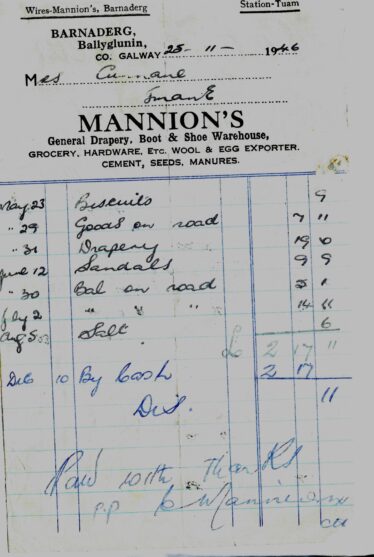 Wires-Mannion's, Barnaderg Station-Tuam
BARNADERG,
Ballyglunin,
CO. GALWAY 25 - 11 - 1946
Mrs Cunnane
MANNION'S
General Drapery, Boot & Shoe Warehouse,
GROCERY, HARDWARE, ETC. WOOL & EGG EXPORTER.
CEMENT, SEEDS, MANURES.
May 23 Biscuits 9
" 29 Goods on road 7 11
" 31 Drapery 19 0
June 12 Sandals 9 9
" 30 Bal on road 5 1
July 2 " " " 14 11
Aug 5 Salt 6
£ 2 17 11
Dec 10 By Cash 2 17
Dis. 11
Paid with thanks
pp